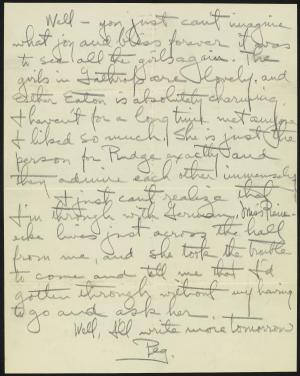 Well – you just can't imagine
what joy and bliss forever it was
to see all the girls again. The
girls in Lathrop are lovely, and
Esther Eaton is absolutely charming.
I haven't for a long time met anyone
I liked so much. She is just the
person for Pudge exactly and
they admire each other immensely.
I just can't realize that
I'm through with German. Miss
lives just across the hall
from me, and she took the trouble
to come and tell me that I'd
gotten through without my having
to go and ask her.
Well, I'll write more tomorrow
Peg.